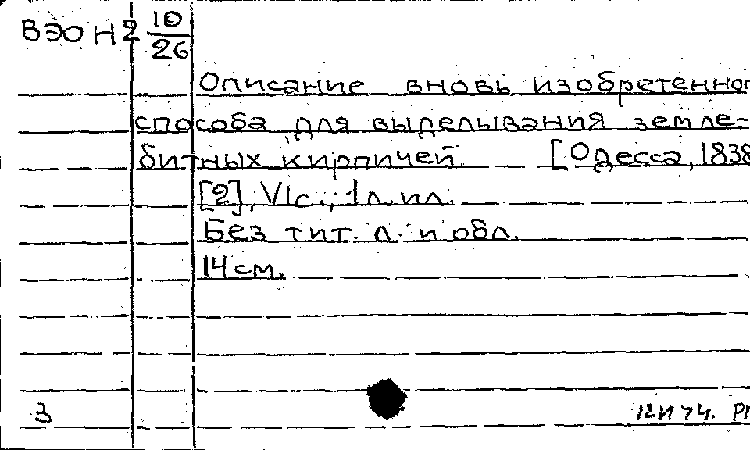 ВЭО Н2 10/26
Описание вновь изобретенног
способа для выделывания земле-
битных кирпичей. [Одесса, 1838
[2], VI с., 1 л. ил.
Без тит. л. и обл.
14 см.
3